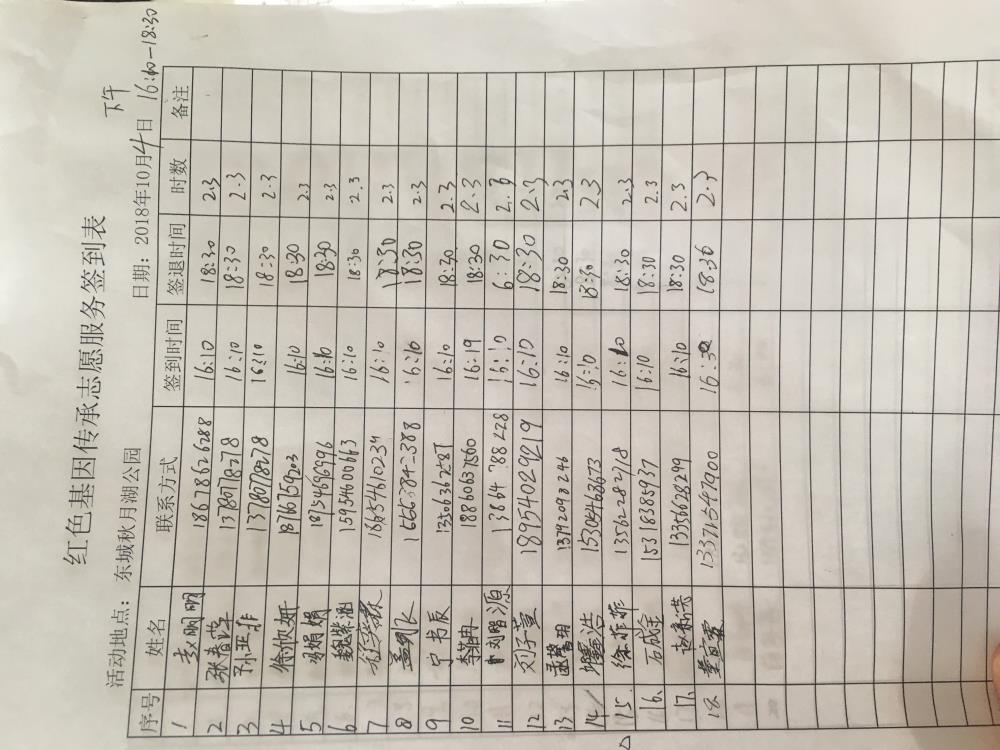 红色基因传承志愿服务签到表
下午
活动地点：东城秋月湖公园 日期：2018年10月4日 16:10-18:30
序号 姓名 联系方式 签到时间 签退时间 时数 备注
1 赵明明 18678626288 16:10 18:30 2.3
2 张春萍 13780778278 16:10 18:30 2.3
3 孙亚菲 13780778278 16:10 18:30 2.3
4 徐欣妍 18766759203 16:10 18:30 2.3
5 娟娟 18754696996 16:10 18:30 2.3
6 魏紫涵 15954600663 16:10 18:30 2.3
7 18654610234 16:10 18:30 2.3
8 1566384-388 16:10 18:30 2.3
9 书辰 13506362587 16:10 18:30 2.3
10 李冉 18860637560 16:19 18:30 2.3
11 刘曙源 13664788228 16:10 6:30 2.3
12 刘子萱 18954029219 16:10 18:30 2.3
13 13792098246 16:10 18:30 2.3
14 浩 15304636673 16:10 18:30 2.3
15. 徐菲菲 13562282718 16:10 18:30 2.3
16、 石成金 15318385937 16:10 18:30 2.3
17、 洪 13356628299 16:10 18:30 2.3
18. 雲 16:30 18:30 2.3